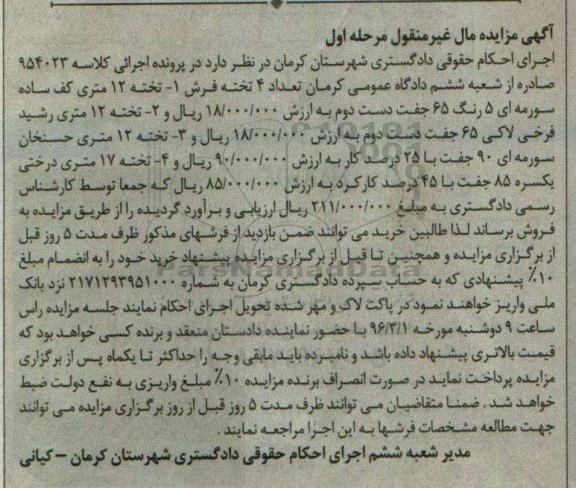 آگهی مزایده مال غیرمنقول مرحله اول
اجرای احکام حقوقی دادگستری شهرستان کرمان در نظر دارد در پرونده اجرائی کلاسه ۹۵۴۰۲۳
صادره از شعبه ششم دادگاه عمومی کرمان تعداد ۴ تخته فرش ۱- تخته ۱۲ متری کف ساده
سورمه ای ۵ رنگ ۶۵ جفت دست دوم به ارزش ۱۸/۰۰۰/۰۰۰ ریال و ۲- تخته ۱۲ متری رشید
فرخی لاکی ۶۵ جفت دست دوم به ارزش ۱۸/۰۰۰/۰۰۰ ریال و ۳- تخته ۱۲ متری حسنخان
سورمه ای ۹۰ جفت با ۲۵ درصد کار به ارزش ۹۰/۰۰۰/۰۰۰ ریال و ۴- تخته ۱۷ متری درختی
یکسره ۸۵ جفت با ۴۵ درصد کارکرد به ارزش ۸۵/۰۰۰/۰۰۰ ریال که جمعا توسط کارشناس
رسمی دادگستری به مبلغ ۲۱۱/۰۰۰/۰۰۰ ریال ارزیابی و برآورد گردیده را از طریق مزایده به
فروش برساند لذا طالبین خرید می توانند ضمن بازدید از فرشهای مذکور ظرف مدت ۵ روز قبل
از برگزاری مزایده و همچنین تا قبل از برگزاری مزایده پیشنهاد خرید خود را به انضمام مبلغ
۱۰٪ پیشنهادی که به حساب سپرده دادگستری کرمان به شماره ۲۱۷۱۲۹۳۹۵۱۰۰۰ نزد بانک
ملی واریز خواهند نمود در پاکت لاک و مهر شده تحویل اجرای احکام نمایند جلسه مزایده راس
ساعت ۹ دوشنبه مورخه ۹۶/۳/۱ با حضور نماینده دادستان منعقد و برنده کسی خواهد بود که
قیمت بالاتری پیشنهاد داده باشد و نامبرده باید مابقی وجه را حداکثر تا یکماه پس از برگزاری
مزایده پرداخت نماید در صورت انصراف برنده مزایده ۱۰٪ مبلغ واریزی به نفع دولت ضبط
خواهد شد . ضمنا متقاضیان می توانند ظرف مدت ۵ روز قبل از روز برگزاری مزایده می توانند
جهت مطالعه مشخصات فرشها به این اجرا مراجعه نمایند .
مدیر شعبه ششم اجرای احکام حقوقی دادگستری شهرستان کرمان – کیانی
ParsNamadData